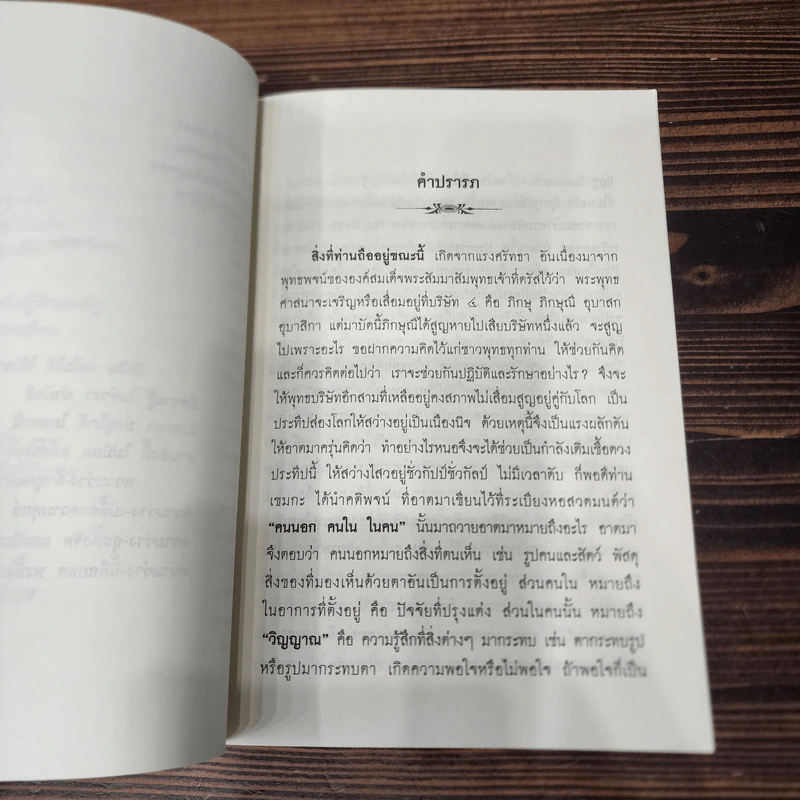 คำปรารภ
สิ่งที่ท่านถืออยู่ขณะนี้ เกิดจากแรงศรัทธา อันเนื่องมาจาก
พุทธพจน์ขององค์สมเด็จพระสัมมาสัมพุทธเจ้าที่ตรัสไว้ว่า พระพุทธ
ศาสนาจะเจริญหรือเสื่อมอยู่ที่บริษัท ๔ คือ ภิกษุ ภิกษุณี อุบาสก
อุบาสิกา แต่มาบัดนี้ภิกษุณีได้สูญหายไปเสียบริษัทหนึ่งแล้ว จะสูญ
ไปเพราะอะไร ขอฝากความคิดไว้แก่ชาวพุทธทุกท่าน ให้ช่วยกันคิด
และก็ควรคิดต่อไปว่า เราจะช่วยกันปฏิบัติและรักษาอย่างไร? จึงจะ
ให้พุทธบริษัทอีกสามที่เหลืออยู่คงสภาพไม่เสื่อมสูญอยู่คู่กับโลก เป็น
ประทีปส่องโลกให้สว่างอยู่เป็นเนืองนิจ ด้วยเหตุนี้จึงเป็นแรงผลักดัน
ให้อาตมาครุ่นคิดว่า ทำอย่างไรหนอจึงจะได้ช่วยเป็นกำลังเติมเชื้อดวง
ประทีปนี้ ให้สว่างไสวอยู่ชั่วกัปป์ชั่วกัลป์ ไม่มีเวลาดับ ก็พอดีท่าน
เขมกะ ได้นำคติพจน์ ที่อาตมาเขียนไว้ที่ระเบียงหอสวดมนต์ว่า
“คนนอก คนใน ในคน” นั้นมาถวายอาตมาหมายถึงอะไร อาตมา
จึงตอบว่า คนนอกหมายถึงสิ่งที่ตนเห็น เช่น รูปคนและสัตว์ พัสดุ
สิ่งของที่มองเห็นด้วยตาอันเป็นการตั้งอยู่ ส่วนคนใน หมายถึง
ในอาการที่ตั้งอยู่ คือ ปัจจัยที่ปรุงแต่ง ส่วนในคนนั้น หมายถึง
“วิญญาณ” คือ ความรู้สึกที่สิ่งต่างๆ มากระทบ เช่น ตากระทบรูป
หรือรูปมากระทบตา เกิดความพอใจหรือไม่พอใจ ถ้าพอใจก็เป็น